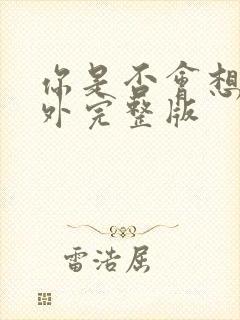 你是否會想
外完整版
雷浩屈